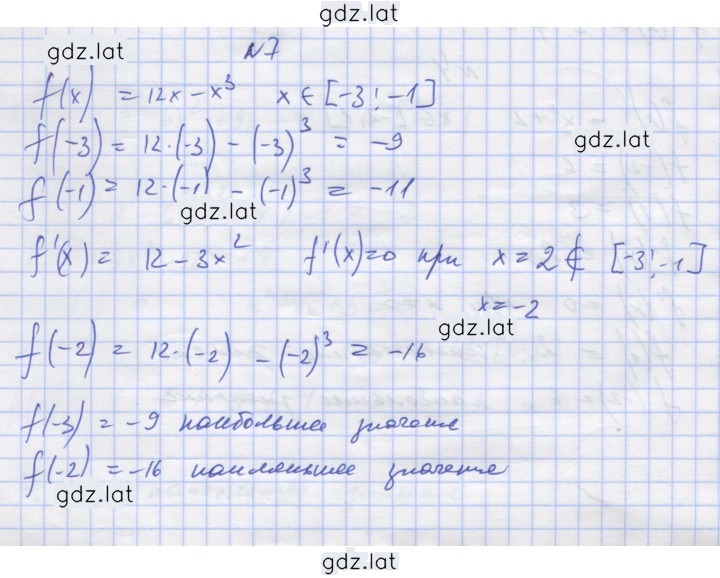 gdz.lat
gdz.lat
№7
f(x) = 12x - x³ x ∈ [-3; -1]
f(-3) = 12·(-3) - (-3)³ = -9
gdz.lat
f(-1) = 12·(-1) - (-1)³ = -11
gdz.lat
f'(x) = 12 - 3x² f'(x)=0 при x = 2 ∉ [-3; -1]
x = -2
gdz.lat
f(-2) = 12·(-2) - (-2)³ = -16
f(-3) = -9 наибольшее значение
f(-2) = -16 наименьшее значение
gdz.lat
gdz.lat